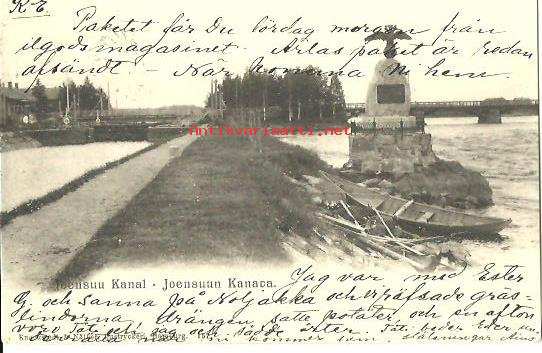 K-E.
Paketet får Du lördag morgon från
ilgodsmagasinet. Arlas paket är redan
afsändt - När komma Ni hem.
antikvariaatti.net
Joensuu Kanal - Joensuun Kanava.
Jag var med Ester
G. och Sanna på Noljakka och vi räfsade gräs-
lindorna. Drängen satte potater, och en afton
voro Tati och jag och sådde ärter. Tati beder Eder
kommer som